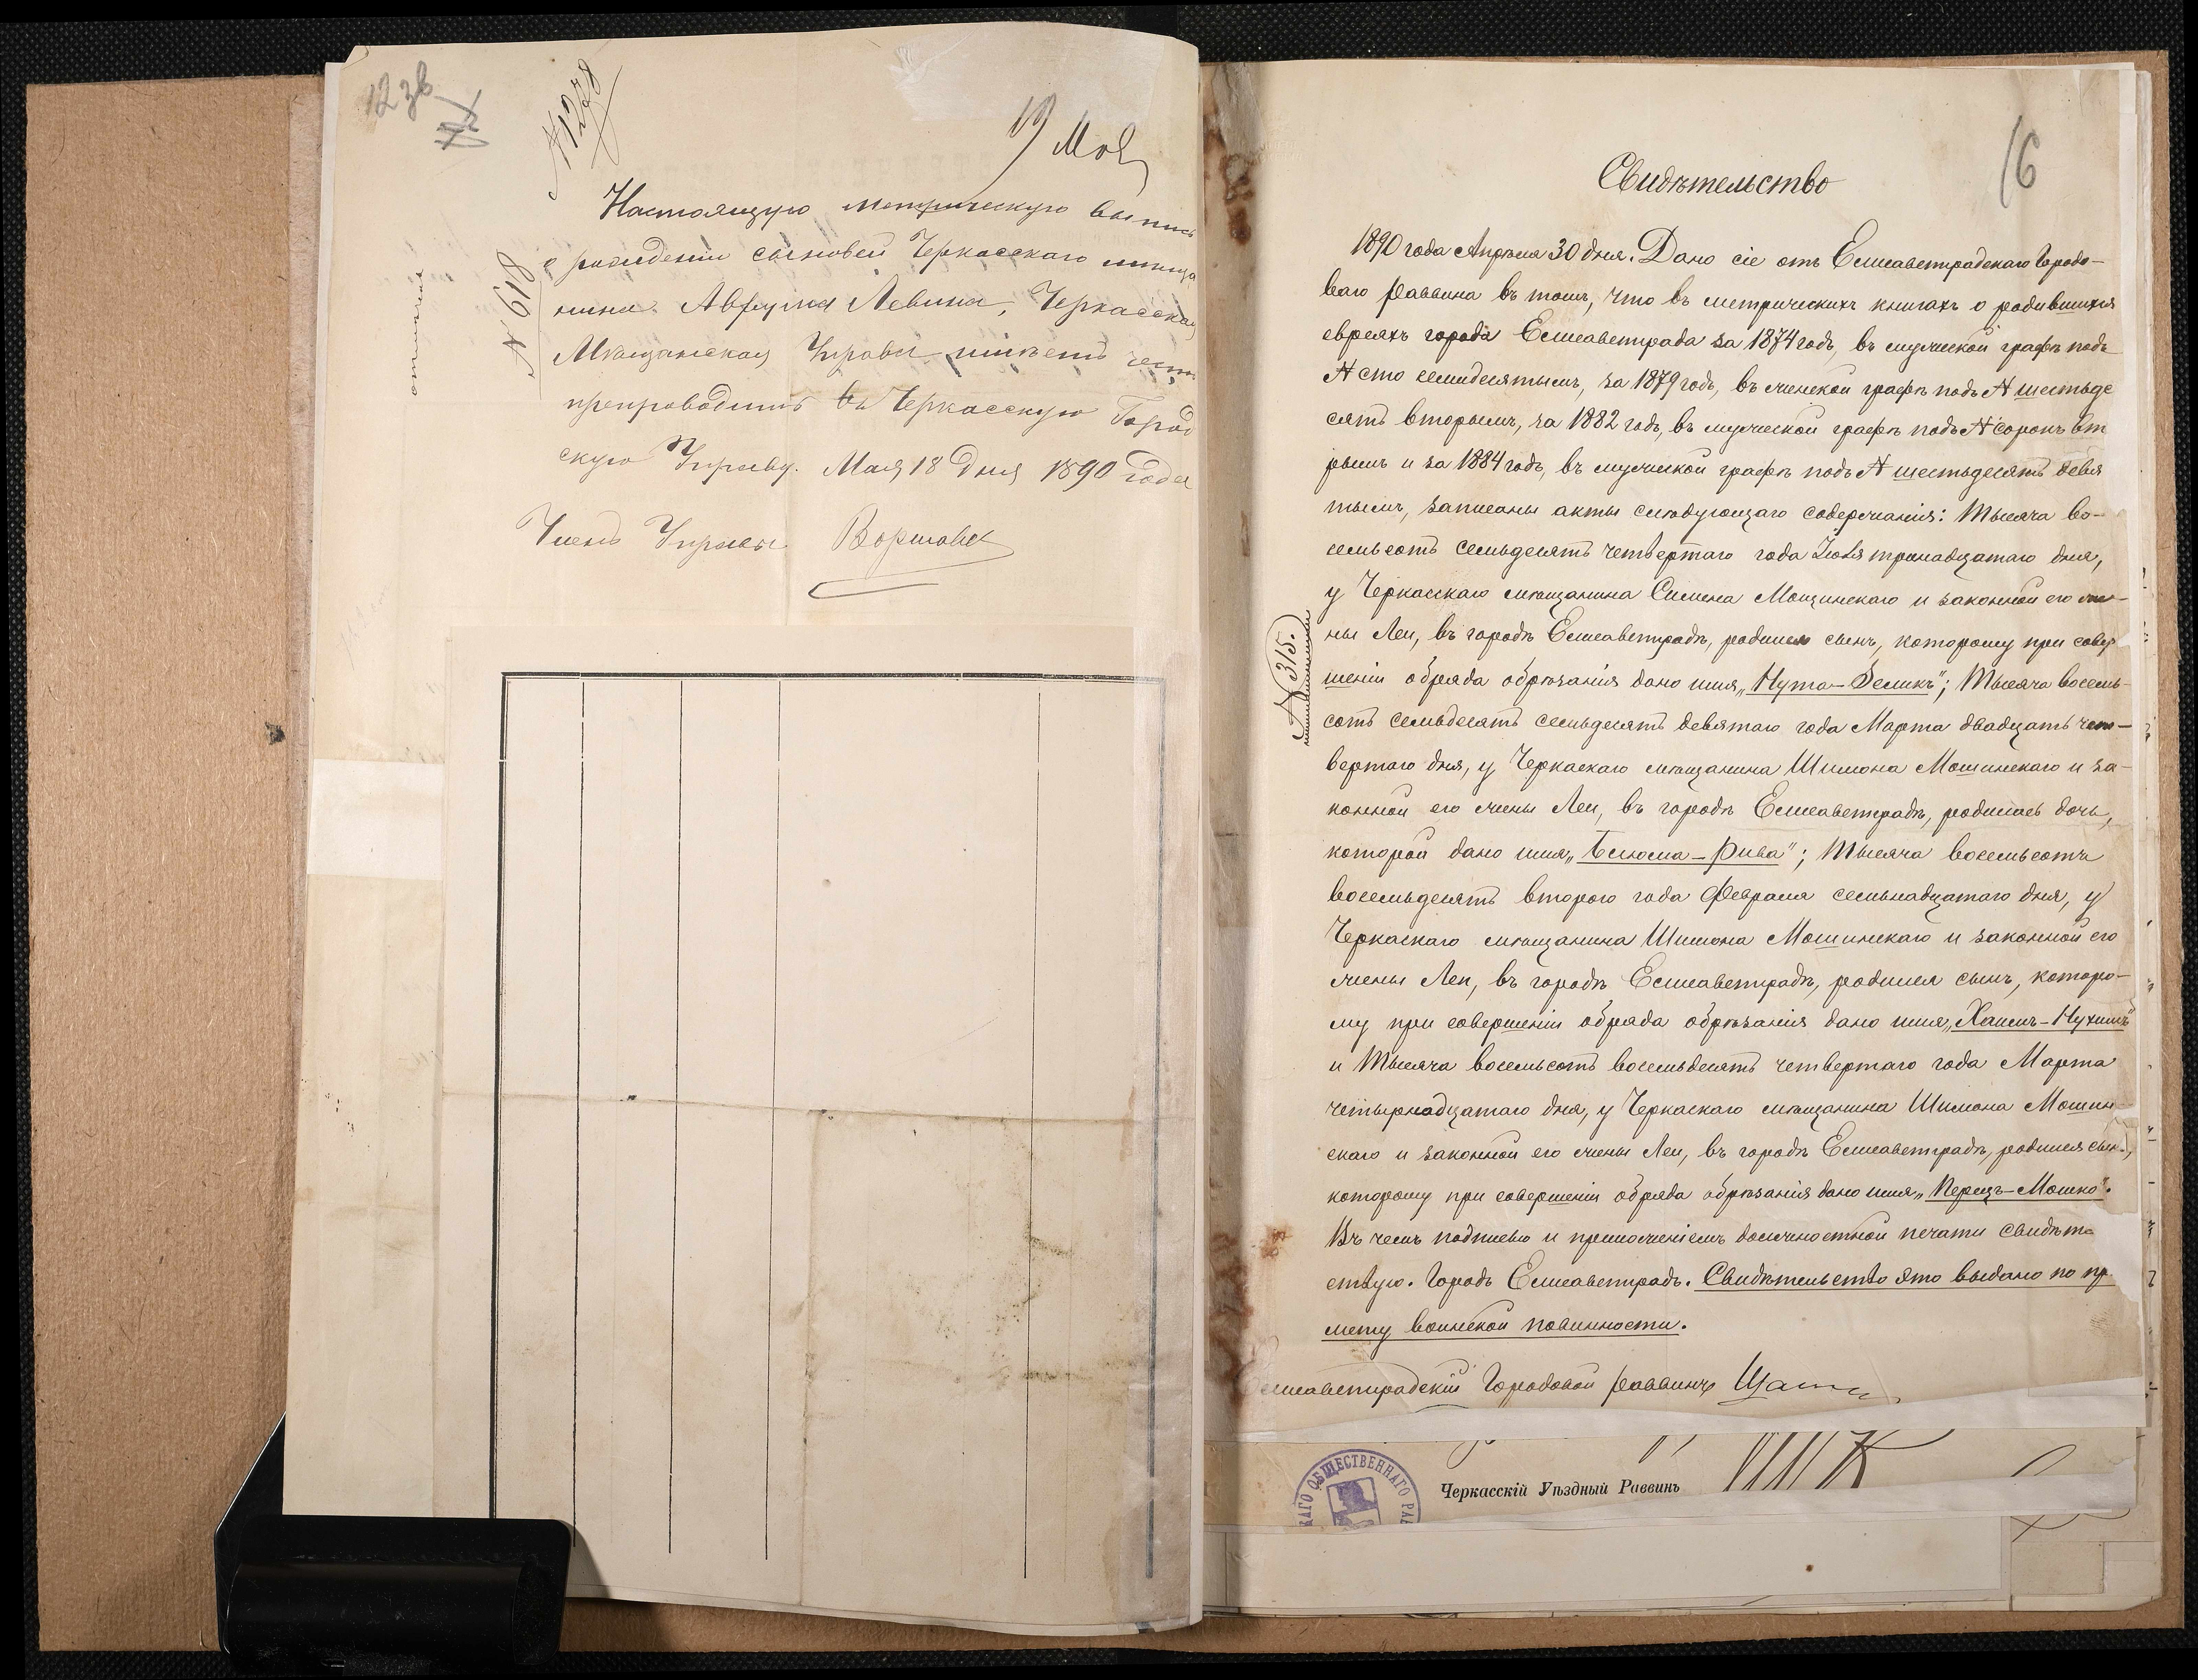 № 1278
19 Мая
Настоящую метрическую выпись
о рождении сыновей Черкасскаго мѣща
нина Аврума Левина, Черкасская
Мѣщанская Управа имѣетъ честь
препроводить въ Черкасскую Город
скую Управу. Мая 18 дня 1890 года
Членъ Управы
№ 618
16
Свидѣтельство
1890 года Апрѣля 30 дня. Дано сіе отъ Елисаветградскаго Городо-
ваго Раввина въ томъ, что въ метрическихъ книгахъ о родившихся
евреяхъ города Елисаветграда за 1874 годъ, въ мужеской графѣ подъ
№ сто семидесятымъ, за 1879 годъ, въ женской графѣ подъ № шестьде
сятъ вторымъ, за 1882 годъ, въ мужеской графѣ подъ № сорокъ вто
рымъ и за 1884 годъ, въ мужеской графѣ подъ № шестьдесятъ девя
тымъ, записаны акты слѣдующаго содержанія: Тысяча во-
семьсотъ семьдесятъ четвертаго года Іюля тринадцатаго дня,
у Черкасскаго мѣщанина Симона Мощинскаго и законной его же-
ны Леи, въ городѣ Елисаветградѣ, родился сынъ, которому при совер
шеніи обряда обрѣзанія дано имя „Нута-Зеликъ"; Тысяча восемь-
сотъ семьдесятъ семьдесятъ девятаго года Марта двадцать чет-
вертаго дня, у Черкаскаго мѣщанина Шимона Мошинскаго и за-
конной его жены Леи, въ городѣ Елисаветградѣ, родилась дочь,
которой дано имя „Блюма-Рива"; Тысяча восемьсотъ
восемьдесятъ второго года Февраля семьнадцатаго дня, у
Черкаскаго мѣщанина Шимона Мошинскаго и законной его
жены Леи, въ городѣ Елисаветградѣ, родился сынъ, которо-
му при совершеніи обряда обрѣзанія дано имя „Хаимъ-Нухимъ"
и Тысяча восемьсотъ восемьдесятъ четвертаго года Марта
четырнадцатаго дня, у Черкаскаго мѣщанина Шимона Мошин-
скаго и законной его жены Леи, въ городѣ Елисаветградѣ, родился сынъ,
которому при совершеніи обряда обрѣзанія дано имя „Перецъ-Мошко".
Въ чемъ подписью и приложеніемъ должностной печати свидѣте
ствую. Городъ Елисаветградъ. Свидѣтельство это выдано по пр
мету воинской повинности.
Елисаветградскій Городовой Раввинъ
№ 315.
ОБЩЕСТВЕННАГО РА
Черкасскій Уѣздный Раввинъ